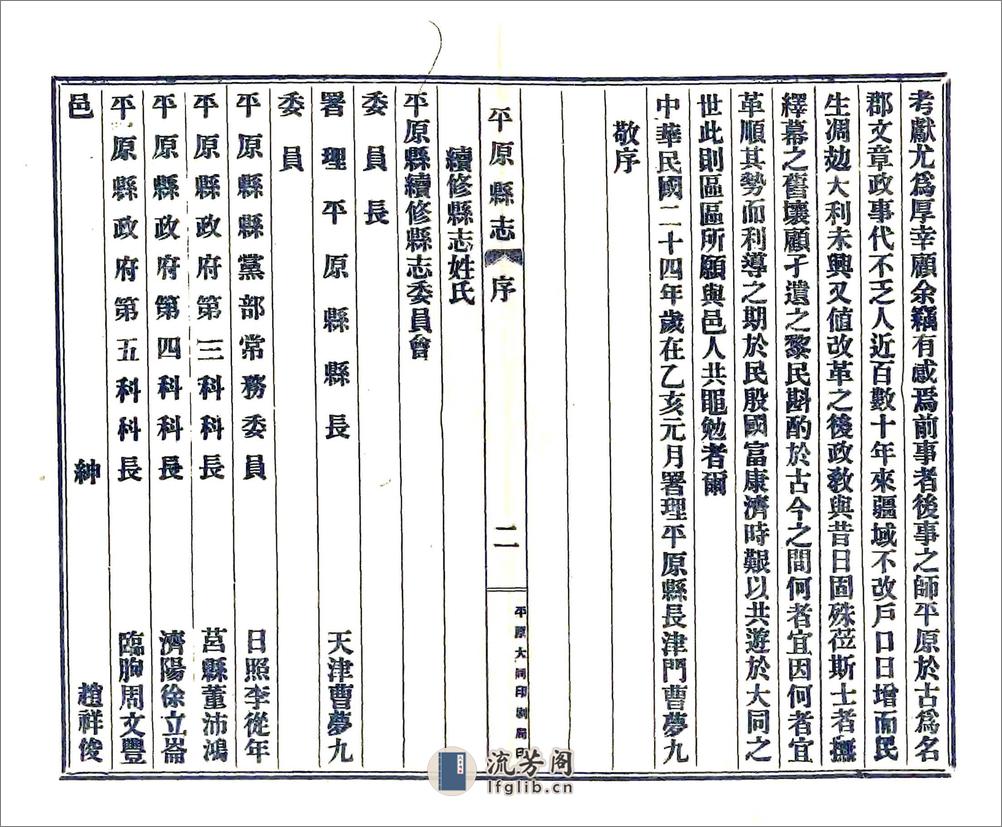 考獻尤爲厚幸顧余竊有感焉前事者後事之師平原於古爲名
郡文章政事代不乏人近百數十年來疆域不改戶口日增而民
生凋劫大利未興又值改革之後政教與昔日固殊莅斯士者撫
繹幕之舊壞顧孑遺之黎民斟酌於古今之間何者宜因何者宜
革順其勢而利導之期於民殷國富康濟時艱以共遊於大同之
世此則區區所願與邑人共黽勉者爾
中華民國二十四年歲在乙亥元月署理平原縣長津門曹夢九
敬序
平原縣志 序 二 平原大同印刷局印
續修縣志姓氏
平原縣續修縣志委員會
委員長
署理平原縣縣長 天津曹夢九
委員
平原縣縣黨部常務委員 日照李從年
平原縣政府第三科科長 莒縣董沛鴻
平原縣政府第四科科長 濟陽徐立崙
平原縣政府第五科科長 臨朐周文豐
邑紳 趙祥俊
流芳阁
lfglib.cn